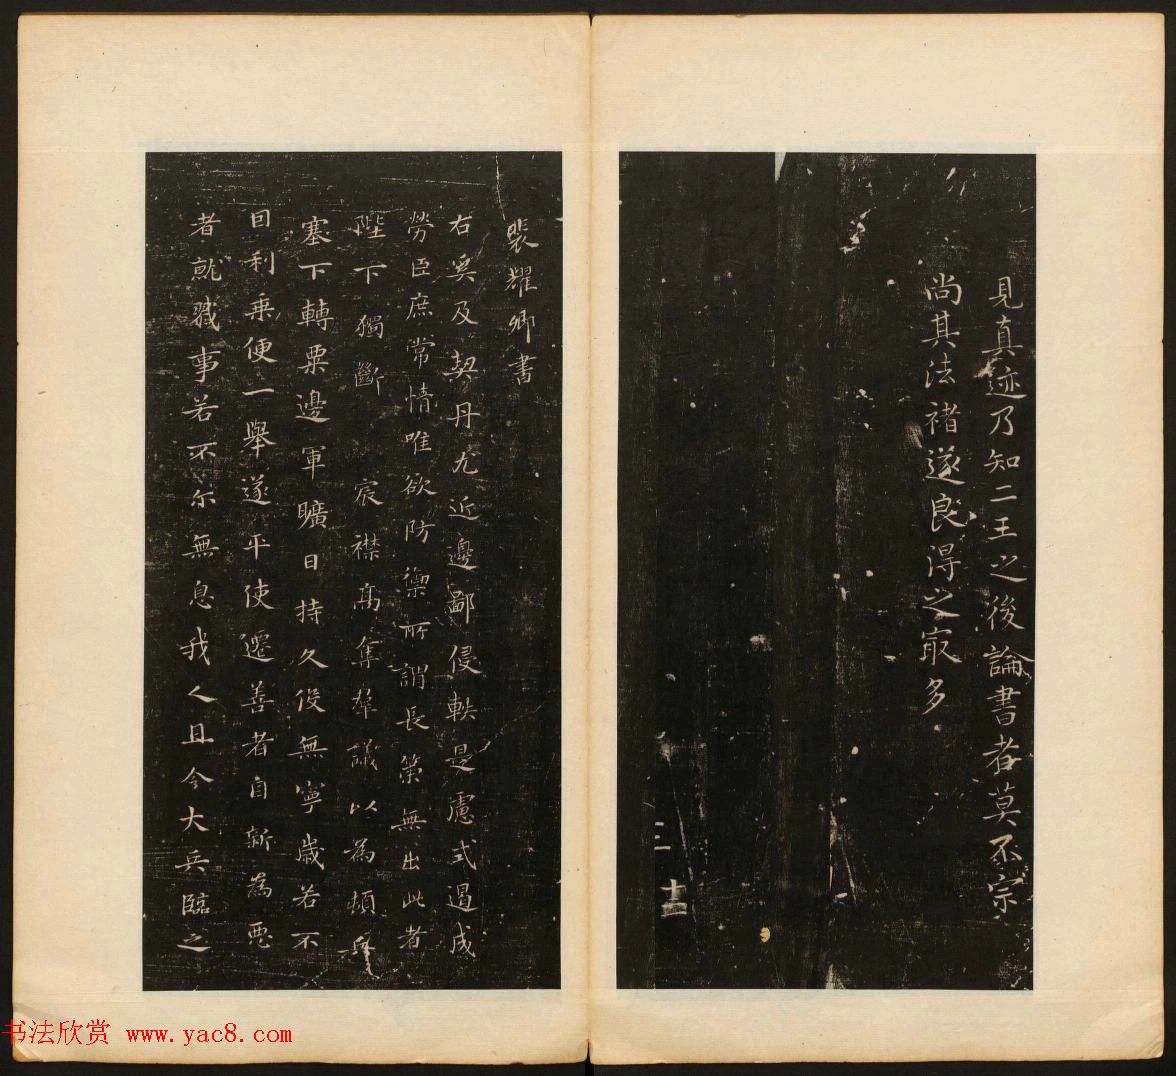 見真迹乃知二王之後論書者莫不宗
尚其法褚遂良得之冣多
三 十二
裴耀卿書
右奚及契丹尤近邊鄙侵軼是慮式遏成
勞臣庶常情唯欲防禦所謂長策無出此者
陛下獨斷 宸襟髙奪羣議以為頓兵
塞下轉粟邊軍曠日持久役無寧歲若不
因利乗便一舉遂平使遷善者自新為惡
者就戮事若不尔無息我人且今大兵臨之
书法欣赏 www.yac8.com